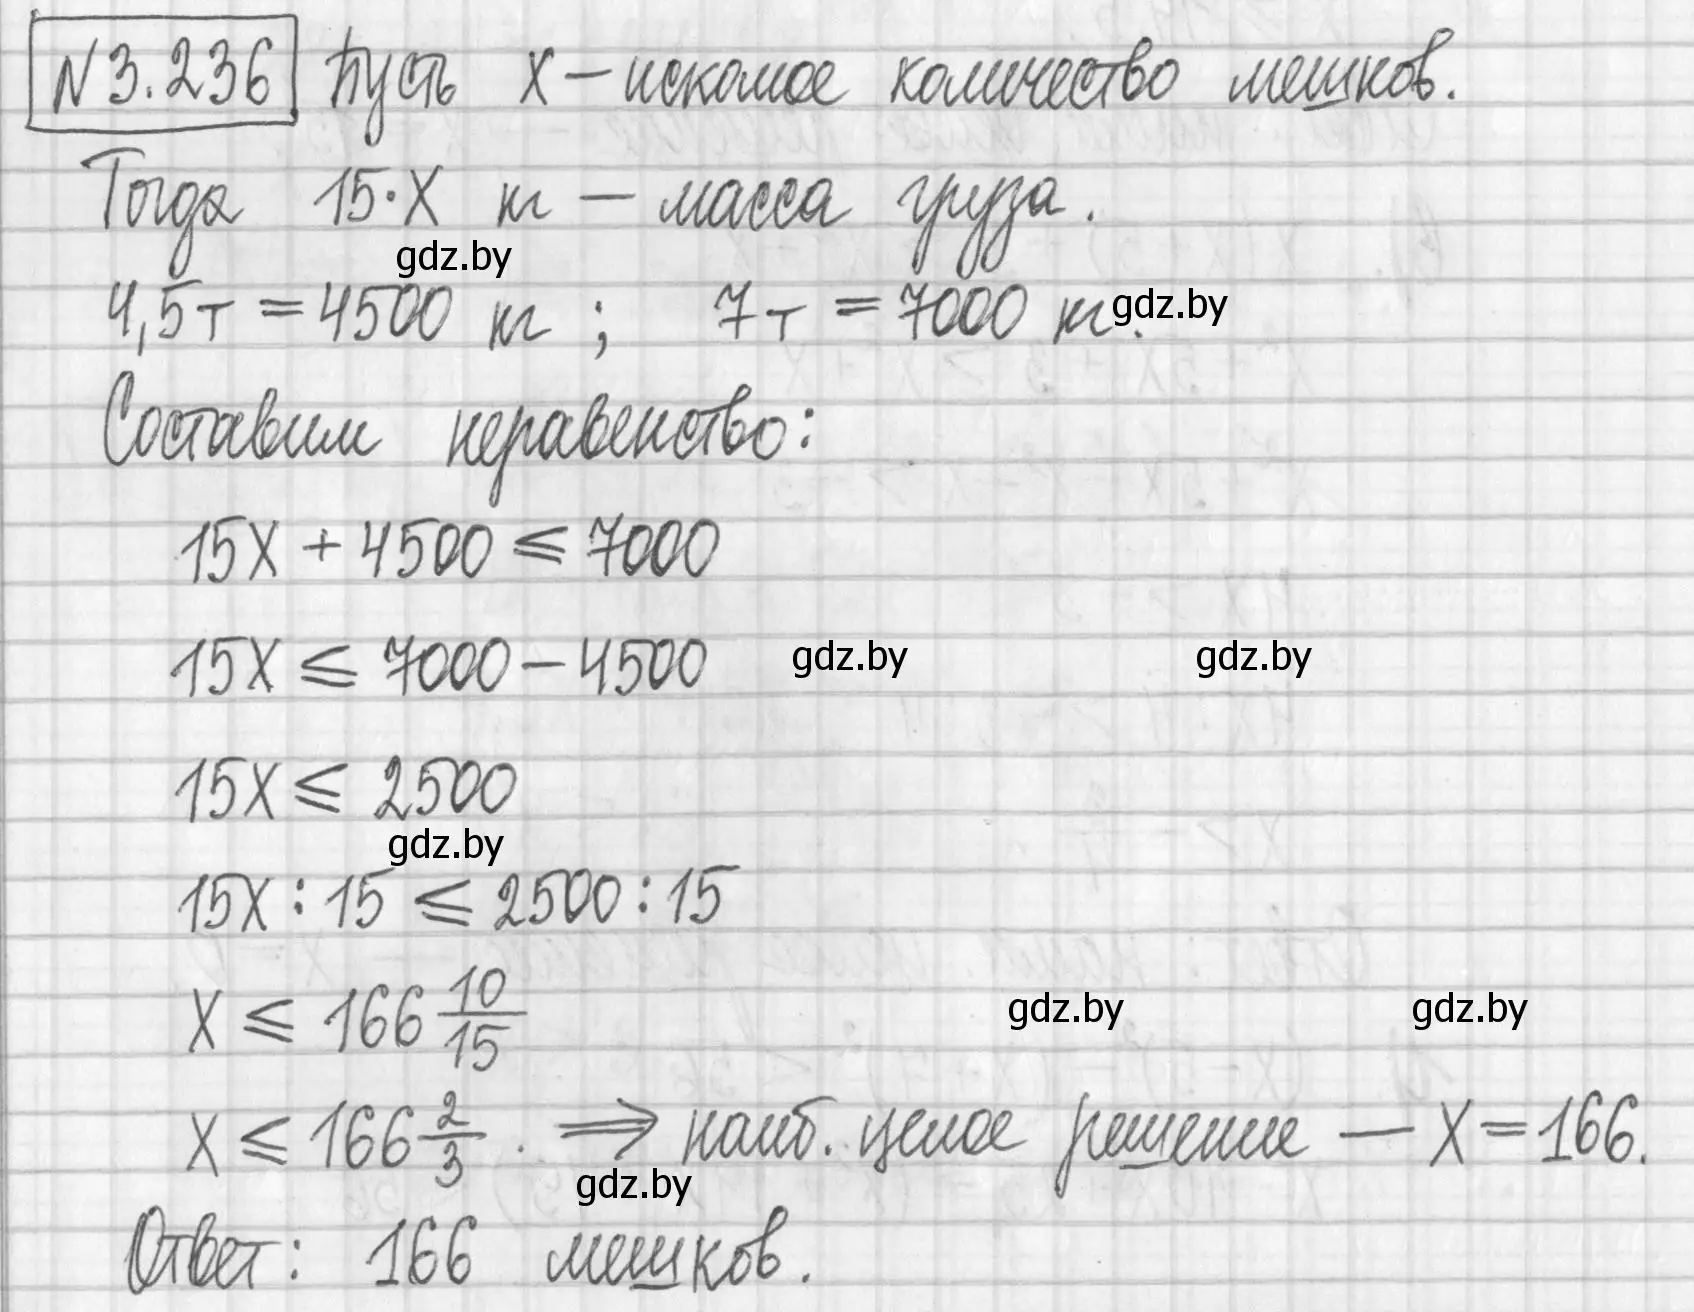 N3.236 Пусть X – искомое количество мешков.
Тогда 15·X кг – масса груза.
gdz.by
4,5т = 4500 кг ; 7т = 7000 кг.
gdz.by
Составим неравенство:
15X + 4500 ⩽ 7000
15X ⩽ 7000 – 4500
gdz.by gdz.by
15X ⩽ 2500
gdz.by
15X : 15 ⩽ 2500 : 15
X ⩽ 166 10/15
gdz.by gdz.by
X ⩽ 166 2/3 . ⟹ наиб. целое решение — X = 166.
gdz.by
Ответ: 166 мешков.